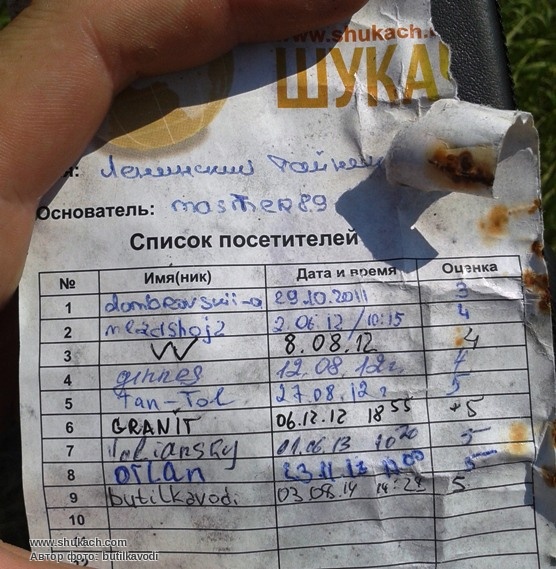 www.shukach.
ШУКА
Ленинский
Основатель: master89
Список посетителей
№ Имя(ник) Дата и время Оценка
1 dombrovskii-a 29.10.2011 3
2 mladshoj2 2.06.12/10:15 4
3 W 8.08.12 4
4 ginnes 12.08.12г. 4
5 Tan-Tol 27.08.12г 5
6 GRANIT 06.12.12 18 55 +5
7 01.06.13 10 20 5
8 ORLAN 5
9 butilkavodi 03.08.14 14:23 5
10
www.shukach.com
Автор фото: butilkavodi